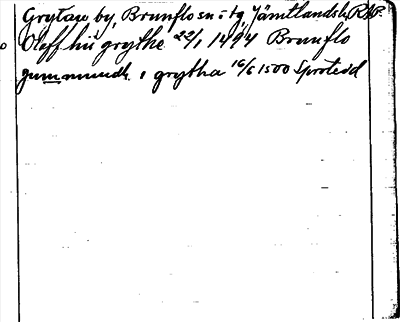 Grytan by, Brunflo sn o tg, Jämtlands l, RAP.
Oleff hii grythe 22/1 1494 Brunflo
gummundh i grytha 16/6 1500 Sproteed